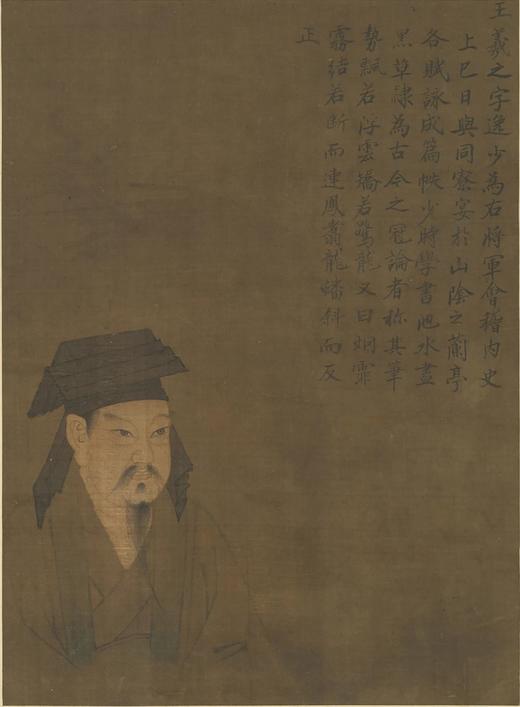 王羲之字逸少為右將軍會稽內史
上巳日與同寮宴於山陰之蘭亭
各賦詠成篇帙少時學書池水盡
黑草隸為古今之冠論者称其筆
勢飄若浮雲矯若驚龍又曰烟霏
霧結若斷而連鳳翥龍蟠斜而反
正